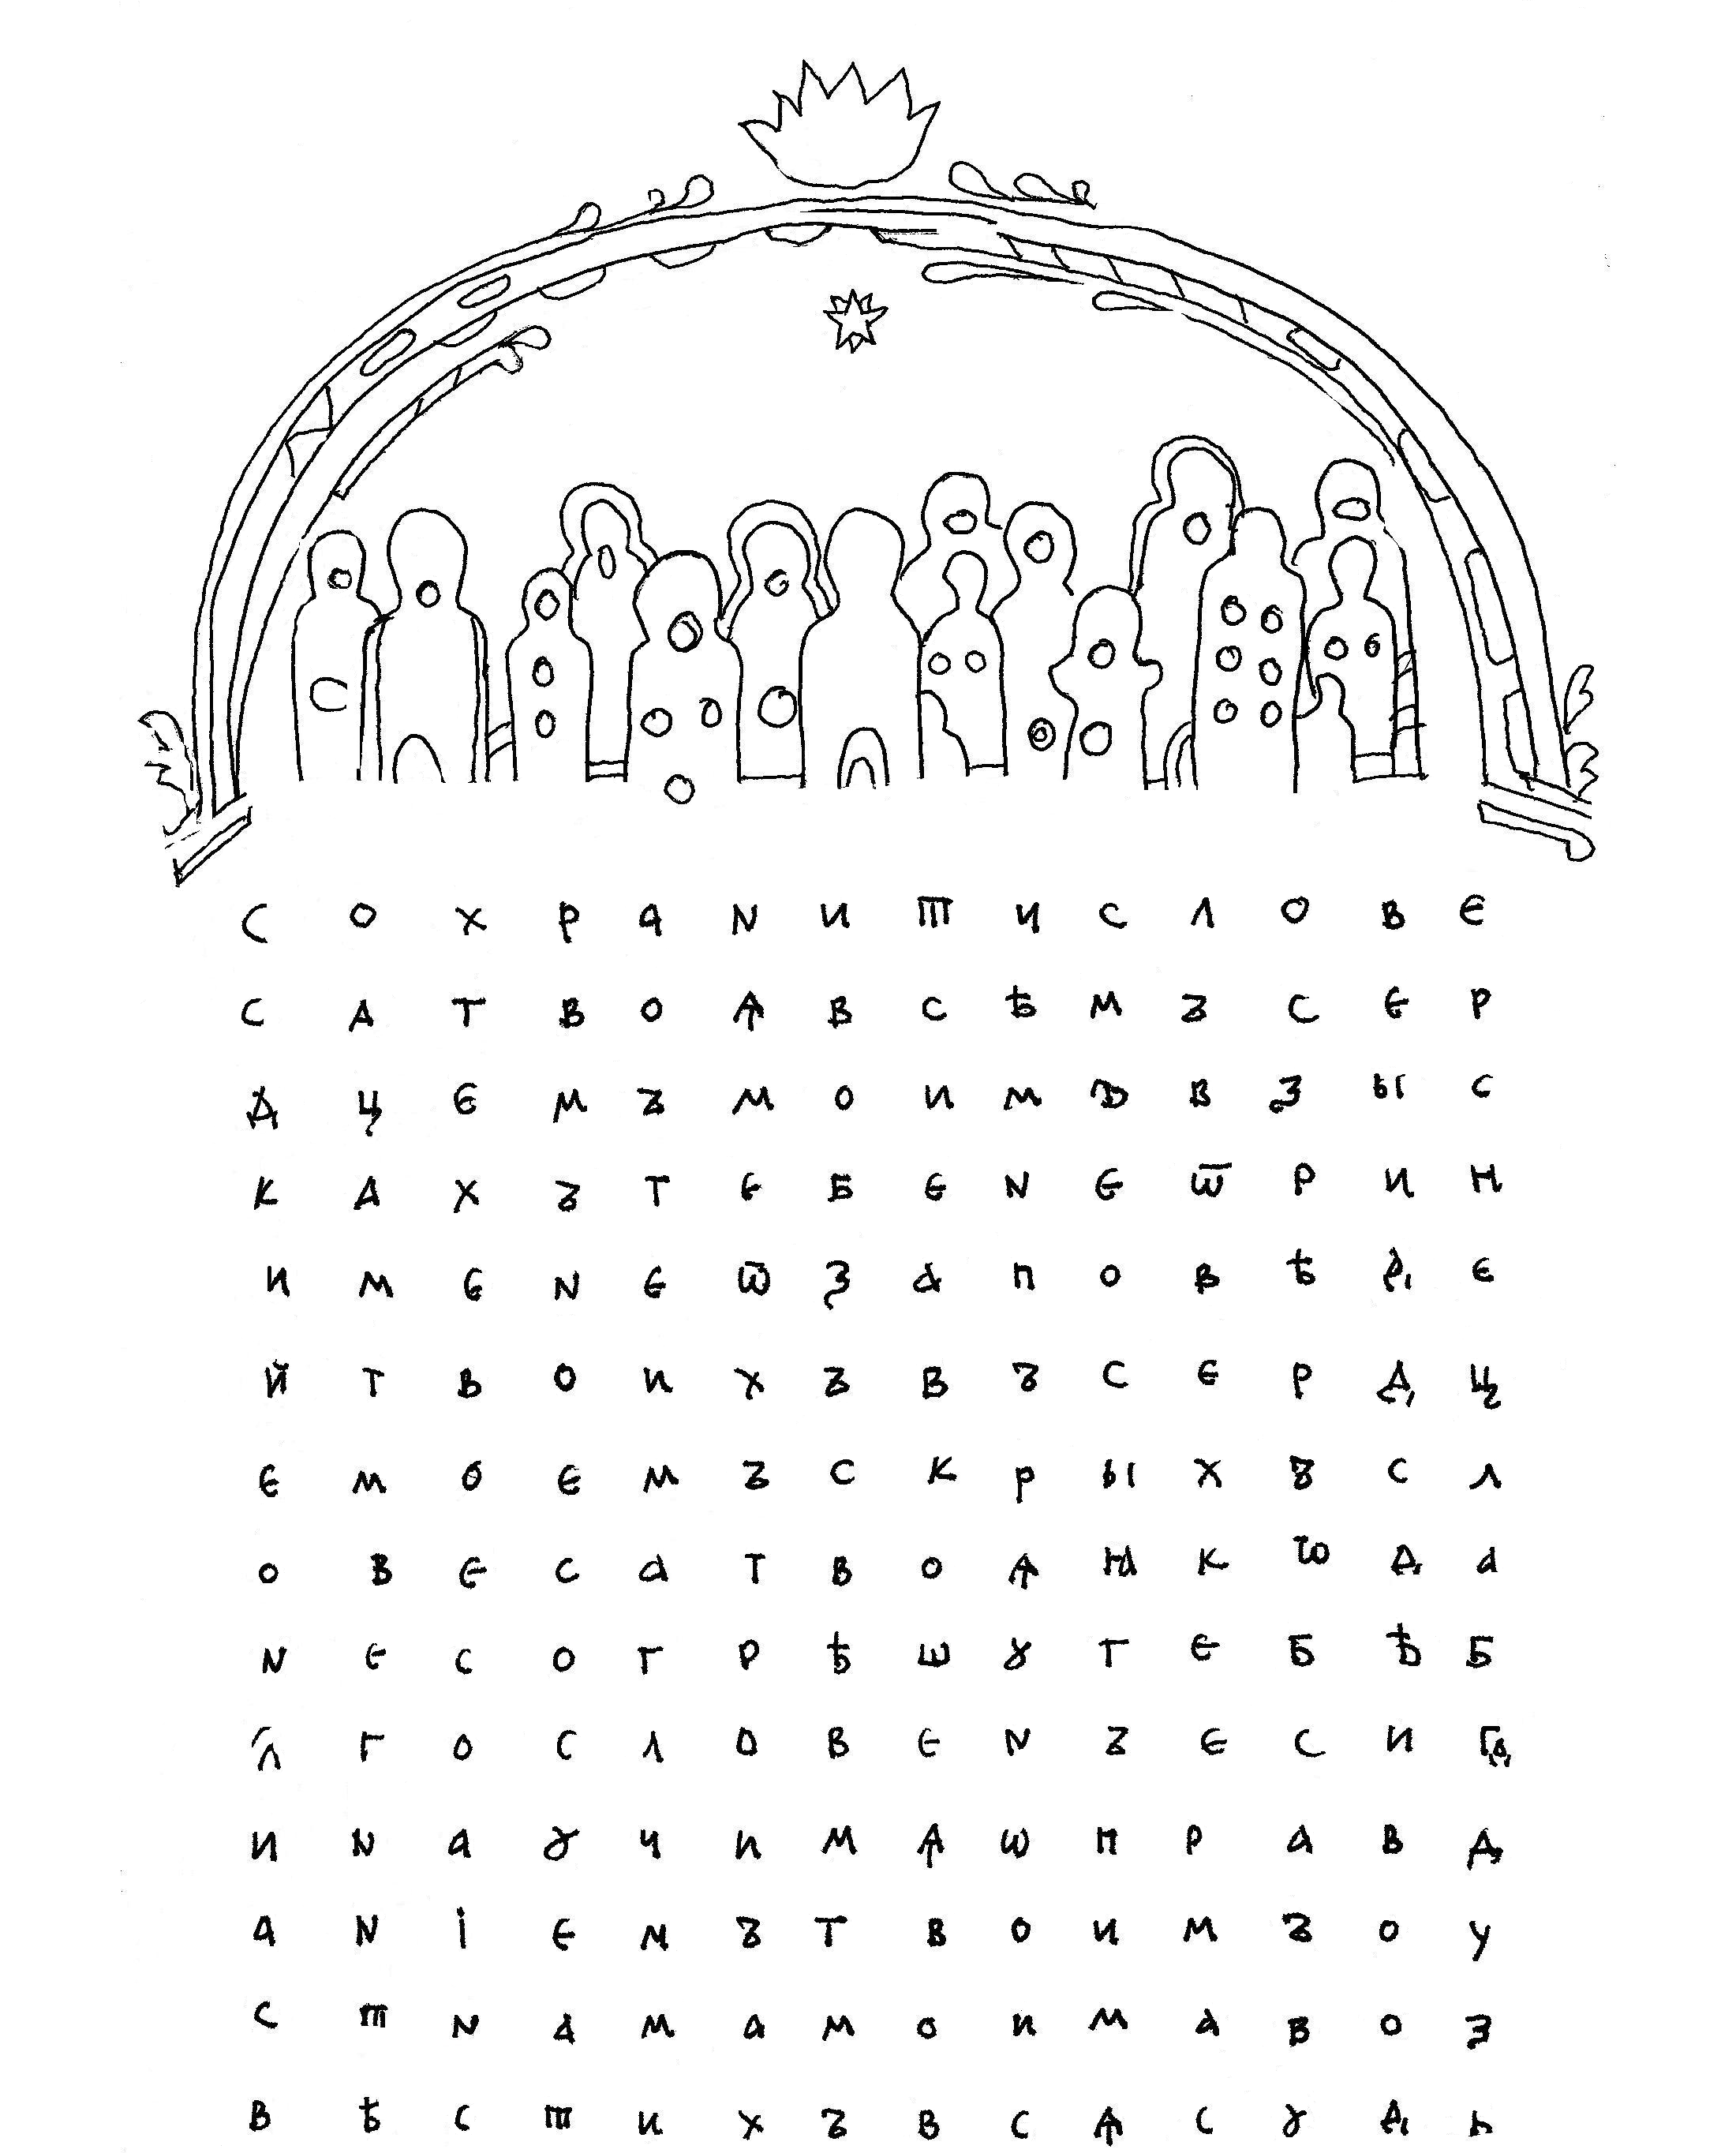 С О Х Р А N И Т И С Л О В Є
С А Т В О Ѧ В С Ѣ М Ъ С Є Р
Д Ц Є М Ъ М О И М Ъ В З Ы С
К А Х Ъ Т Є Б Є N Є Ѿ Р И Н
И М Є N Є Ѿ З А П О В Ѣ Д Є
Й Т В О И Х Ъ В Ъ С Є Р Д Ц
Є М О Є М Ъ С К Р Ы Х Ъ С Л
О В Є С А Т В О Ѧ Ꙗ К Ѡ Д А
N Є С О Г Р Ѣ Ш Ꙋ Т Є Б Ѣ Б
Л Г О С Л О В Є N Ъ Є С И Гд
И N А Ꙋ Ч И М Ѧ Ѡ П Р А В Д
А N І Є М Ъ Т В О И М Ъ О У
С Т N А М А М О И М А В О З
В Ѣ С Т И Х Ъ В С Ѧ С Ꙋ Д Ь